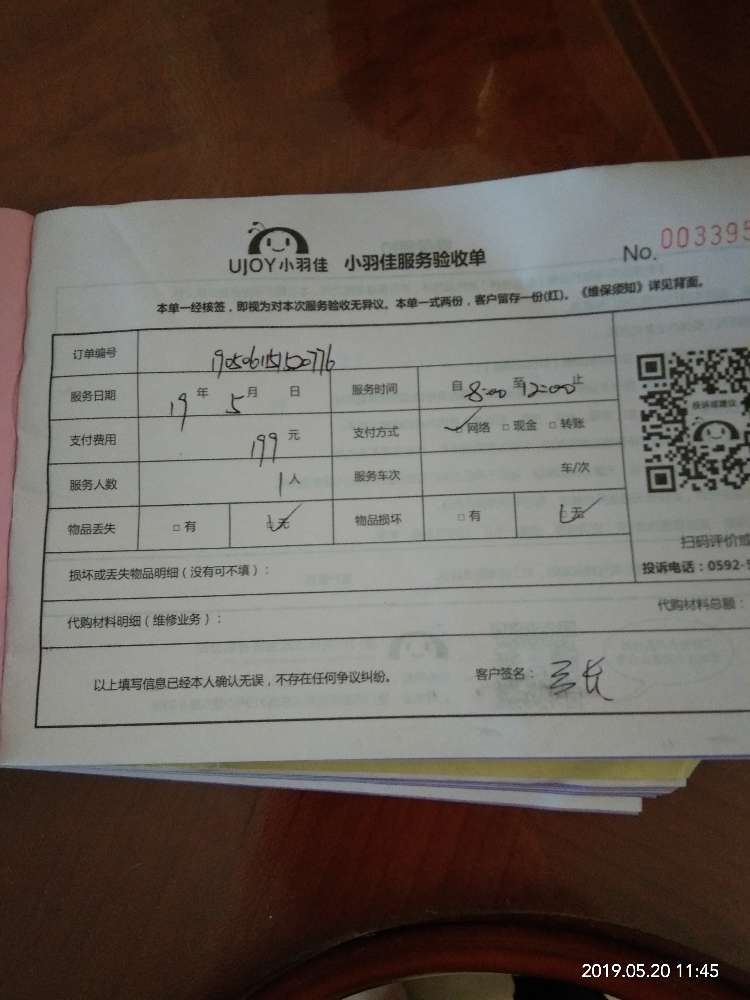 UJOY小羽佳 小羽佳服务验收单
No. 003395
本单一经核签，即视为对本次服务验收无异议。本单一式两份，客户留存一份(红)。《维保须知》详见背面。
订单编号
服务日期 19年 5月 日 服务时间 自 8:00 至 12:00 止
支付费用 199 元 支付方式 网络 现金 转账
服务人数 1人 服务车次 车/次
物品丢失 有 无 物品损坏 有 无
投诉或建议
扫码评价或
投诉电话：0592-5
损坏或丢失物品明细（没有可不填）：
代购材料明细（维修业务）： 代购材料总额：
以上填写信息已经本人确认无误，不存在任何争议纠纷。 客户签名：
2019.05.20 11:45